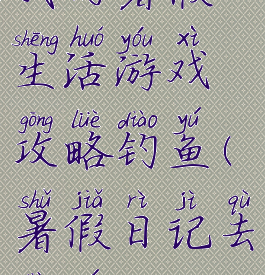 shēng huó yóu xì
生活游戏
gōng lüè diào yú
攻略钓鱼(
shǔ jiǎ rì jì qù
暑假日记去